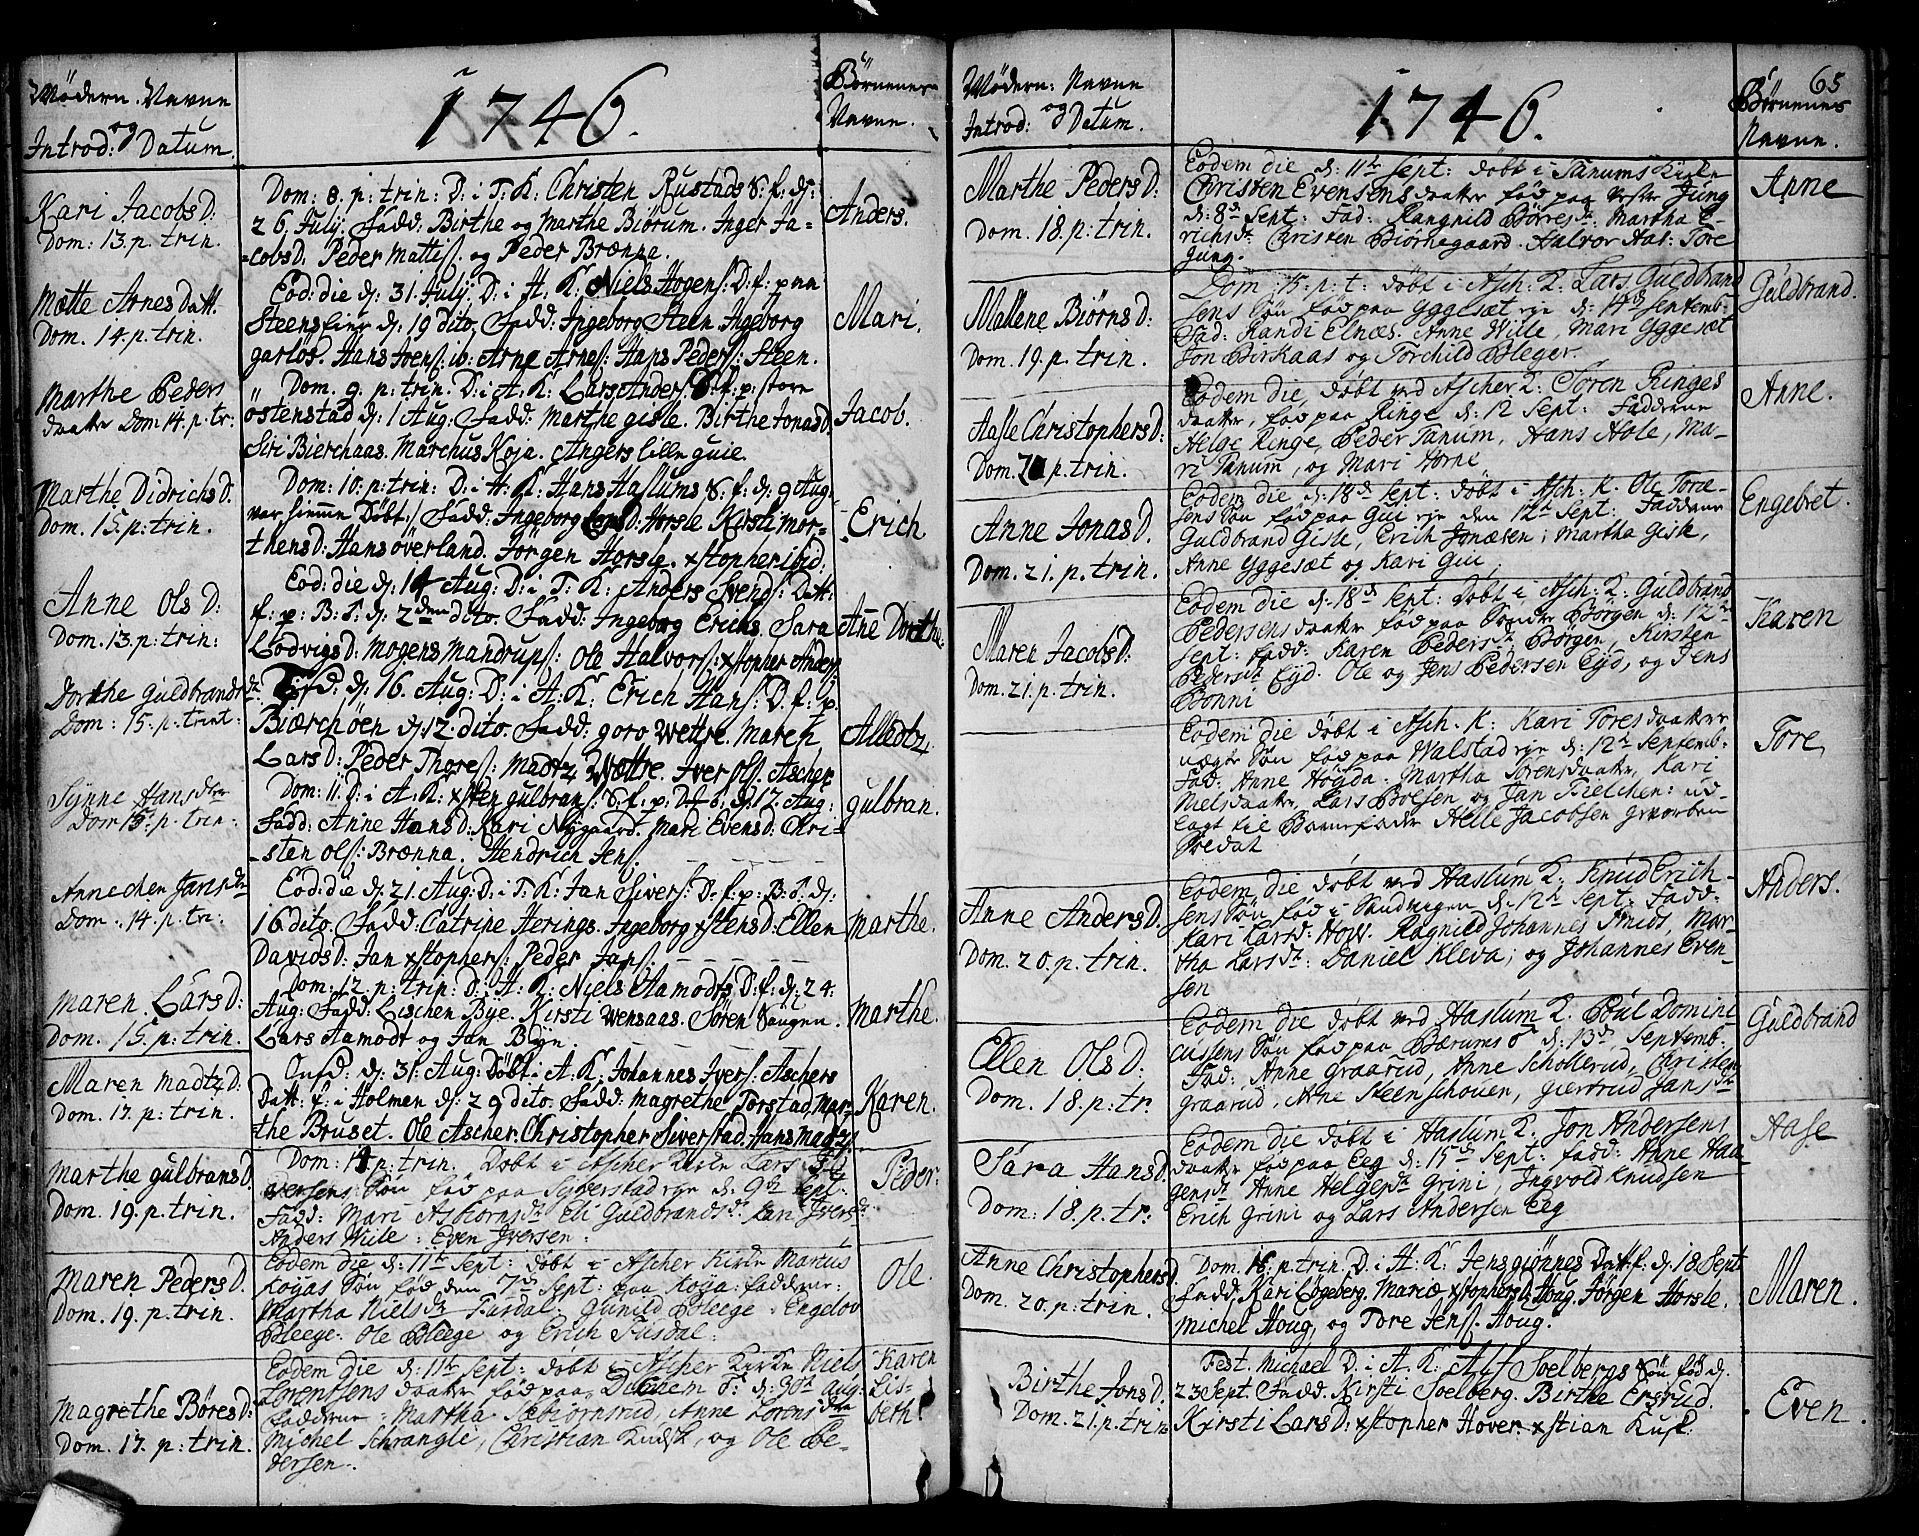 Mödern. Navne
og
Introd: Datum.
1746.
Börnenes
Navne.
Kari Jacobs D:
Dom: 13. p. trin.
Dom: 8. p: trin: D. i. T. K: Christen Rustads S. f. d:
26 July. Fadd: Birthe og Marthe Biörum. Inger Ja-
cobs D. Peder Mattis. og Peder Brænna.
Anders.
Mætte Arnes Datt.
Dom. 14. p. trin.
Eod: die d: 31 July. D: i A. K: Niels Hogens: D: f: paa
Steens d: 19 dito. Fadd: Ingeborg Steen Ingeborg
Hans Ivens: ib: Arne Arnes: Hans Peders: Steen.
Mari.
Marthe Peders
daatter Dom 14. p: tr:
Dom. 9. p: trin. D: i A. K: Lars Anders S. f. p: store
östenstad d: 1 Aug. Fadd: Marthe gisle. Birthe Jonas D.
Siri Bierchaas. Marchus Koja. Anders lille guie.
Jacob.
Marthe Didrichs D.
Dom. 15. p: trin:
Dom: 10: p: trin: D. i H. K: Hans Haslums S. f: d: 9 Aug.
var hiemme Döbt: / Fadd: Ingeborg Horsle Kirsti Mor-
thens D: Hans överland. Jörgen Horsle. xstopher ibid:
Erich
Anne Ols D:
Dom. 13. p: trin:
Eod: die d: 14 Aug: D: i T. K: Anders Svends: Datt:
f: p: B: S. d: 2den dito. Fadd: Ingeborg Erichs. Sara
Lodvigs D: Mogens Mandrups: Ole Halvors: xstopher Anders:
Anne Dorthe.
Dorthe Guldbrands dr
Dom: 15. p: trint:
d: 16. Aug: D: i A. K: Erich Hans: D. f: p:
Biærchöen d: 12. dito. Fadd: goro Wettre. Maren
Lars D: Peder Thores: Madtz Wættre. Iver ols: Ascher.
Synne Hansdtr
Dom 15. p. trin:
Dom: 11. D: i A: K: xsten gulbrans: S. f: p: d: 12. Aug:
Fadd: Anne Hans D: Kari Nygaard. Mari Evens D: Chri-
sten ols: Brænna. Hendrich Jens.
gulbran.
Annechen Jans dr
Dom. 14. p: tr:
Eod: die d: 21. Aug: D: i T. K: Jan Sivers: D: f: p: B: S. d:
16 dito. Fadd: Catrine Herings. Ingeborg xstens D: Ellen
Davids D: Jan xstophers: Peder Jans:
marthe.
maren Lars D:
Dom. 15. p: trin.
Dom: 12. p: trin: D. i A: K: Niels Aamodts D: f: d: 24.
Aug: Fadd: Lischen Bye. Kirsti Wensaas. Sören Haugen.
Lars Aamodt og Jan Byn.
marthe.
Maren madtz D:
Dom. 17. p: trin.
Onsd: d: 31 Aug: Döbt i A. K. Johannes Ivers: Aschers
Datt: f: i Holmen d: 29 dito. Fadd: Magrethe Torstad. Mar-
the Bruset. Ole Ascher. Christopher Siverstad. Hans Madtz:
Karen.
marthe gulbrans D.
Dom. 19. p: trin.
Dom: 14 p: trin. Döbt i Ascher Kirke Lars
versens Sön föd paa Syverstad d: 9de Sept.
Fadd: Mari Asbiorns dr Eli Guldbrands dr Kari Ivers dr
Anders Wiile: Even Iversen:
Peder.
Maren Peders D.
Dom. 19. p: trin.
Eodem die d: 11te Sept: döbt i Ascher Kirke Martus
Kojas Sön föd den 7de Sept: paa Koja: faddere:
Martha Niels dr Fusdal: Gunild Bleege: Engelov
Bleege. Ole Bleege og Erich Fusdal:
Ole.
Magrethe Böres D:
Dom. 17. p: trin.
Eodem die d: 11te Sept: döbt i Ascher Kirke Niels
Lorentsens daatter föd paa d: 30te Aug:
faddere: Martha Sæbiornsrud, Anne Lorens dr
Michel Schrangle, Christian Kudsk, og Ole Pe-
dersen.
Karen
Lis-
beth
65
Mödern: Navne
og
Introd: Datum.
1746.
Börnenes
Navne.
Marthe Peders D:
Dom. 18. p: trin.
Eodem die d. 11te Sept: döbt i Tanums Kirke
Christen Evensens daatter föd paa vestre Jung
d: 8de Sept: Fad: Rangnild Börres dr Martha E-
richs dr Christen Biörnegaard. Halvor Aas: Tore
Jung.
Anne
Mallene Biörns D:
Dom. 19. p. trin.
Dom 15. p. t: döbt i Asch: K: Lars Guldbrand
sens Sön föd paa Yggesæt d: 14de Septemb:
Fad: Randi Elnæs. Anne Wille, Mari Yggesæt
Jon Berkaas og Torchild Bleger.
Guldbrand.
Aasse Christophers D:
Dom. p. trin.
Eodem die, döbt ved Ascher K: Sören Ringes
daatter, föd paa Ringe d: 12 Sept: Faddere
Helge Ringe, Peder Tanum, Hans Hole, Ma-
ri Tanum, og Mari Horne
Anne.
Anne Jonas D.
Dom. 21. p. trin.
Eodem die d: 18de Sept: döbt i Asch: K. Ole Tore-
sens Sön föd paa Gui den 12te Sept: Faddere
Guldbrand Gisle, Erich Jonæsen, Martha Gisle,
Anne Yggesæt og Kari Gui,
Engebret.
Maren Jacobs D:
Dom. 21. p: trin.
Eodem die d: 18de Sept: döbt i Asch: K: Guldbrand
Pedersens daatter föd paa Söndre Borgen d: 12te
Sept: fadd: Karen Peders dr Borgen, Kirsten
Peders dr Eyd. Ole og Jens Pedersen Eyd, og Jens
Bonni
Karen
Eodem die döbt i Asch. K: Kari Tores daatter
uægte Sön föd paa Walstad d: 12te Septemb:
Fad: Anne Högda. Martha Sörens daatter, Kari
Niels daatter, Lars Bolsen og Jan Trelchen: ud-
lagt til Barnefader Helle Jacobsen gevorben
Soldat
Tore
Anne Anders D.
Dom. 20. p: trin.
Eodem die döbt ved Haslum K: Knud Erich-
sens Sön föd i Sandvigen d: 12te Sept: Fadd:
Kari Lars dr: Ragnild Johannes Smids, Mar-
tha Lars dr: Daniel Kleva, og Johannes Even-
sen
Anders.
Ellen Ols D:
Dom. 18. p: tr.
Eodem die döbt ved Haslum K. Poul Domini
cussens Sön föd paa Bærums d: 13de Septemb:
Fad: Anne Graarud, Anne Schollerud, Christen
graarud, Arne Steenschouen, Giertrud Jans dr
Guldbrand
Sara Hans D.
Dom: 18. p. tr:
Eodem die döbt i Haslum K. Jon Andersens
daatter föd paa Eeg d: 15de Sept: fadd: Anne Haa-
gens dr Anne Helges dr Grini, Ingvold Knudsen
Erich Grini og Lars Andersen Eeg
Aase
Anne Christophers D.
Dom. 20. p: trin.
Dom. 16. p: trin. D. i H. K. Jens gjönnes Datt f: d: 18 Sept
Fadd: Kari Lögeberg. Mariæ xstophers D. Houg. Jörgen Horsle.
Michel Houg, og Tore Jens. Houg.
Maren.
Birthe Jons D.
Dom. 21. p. trin
Fest. Michael D. i A. K: Alf Soelbergs Sön föd d.
23 Sept. Fadd: Kirsti Soelberg. Birthe Ersrud.
Kirsti Lars D: xstopher Hover. xstian Kusk.
Even.